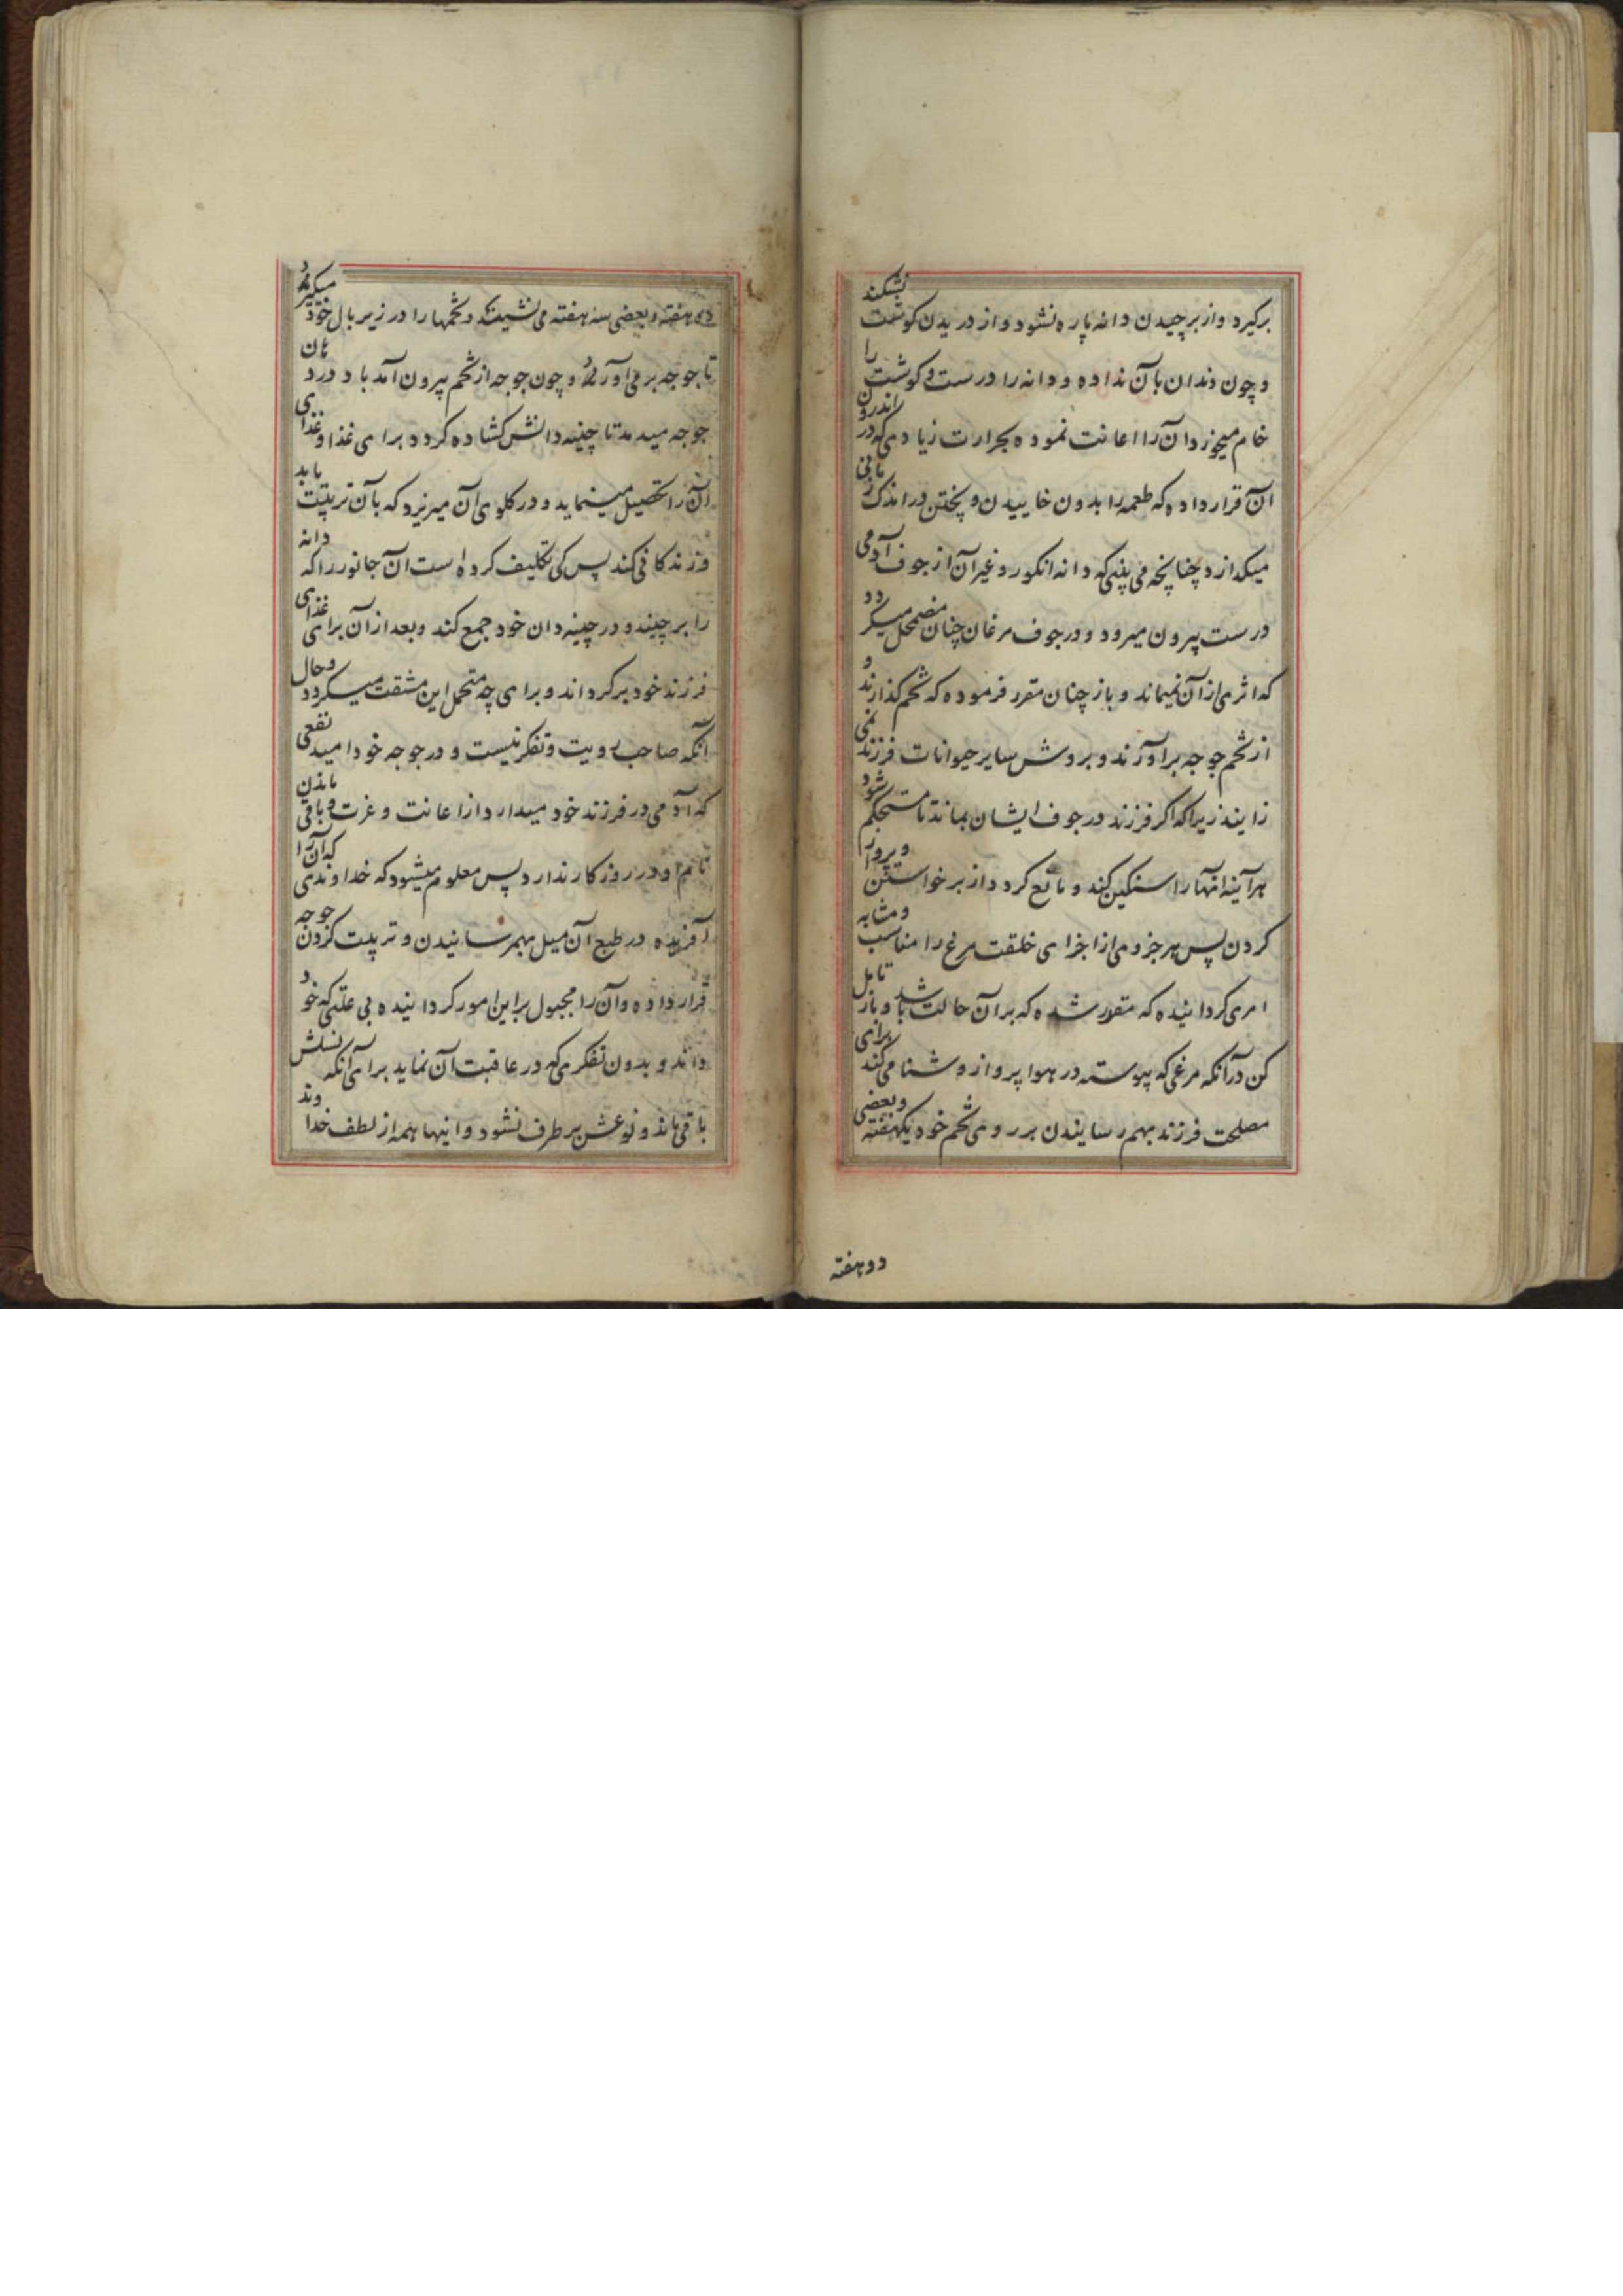 برکیرد و از برچیدن دانه پاره نشود و از دریدن کوشت نشکند
و چون دندان بآن نداده و دانه را درست و کوشت را
خام میخورد آن را اعانت نموده بحرارت زیادی که در اندرون
آن قرار داده که طعمه را بدون خاییدن و پختن در اندک زمانی
میکدازد چنانچه می بینی که دانه انکور و غیر آن از جوف آدمی
درست بیرون میرود و در جوف مرغان چنان مضمحل میکردد
که اثری از آن نمیماند و باز چنان مقرر فرموده که تخم کذارند و
از تخم جوجه برآورند و بروش سایر حیوانات فرزند نمی
زایند زیرا که اکر فرزند در جوف ایشان بماند تا مستحکم شود
هرآینه انها را سنکین کند و مانع کردد از برخواستن و پرواز
کردن پس هر جزوی از اجزای خلقت مرغ را مناسب و مشابه
امری کردانیده که مقرر شده که بر آن حالت باشد و باز تامل
کن در آنکه مرغی که پیوسته در هوا پرواز و شنا می کند برای
مصلحت فرزند بهم رسایندن بر روی تخم خود یکهفته و بعضی
دو هفته
دو هفته و بعضی سه هفته می نشینند و تخمها را در زیر بال خود میکیرند
تا جوجه بر می آورند و چون جوجه از تخم بیرون آمد باد در دهان
جوجه میدمد تا چینه دانش کشاده کردد برای غذا و غذای
آن را تحصیل مینماید و در کلوی آن میریزد که بآن تربیت یابد
و زندکانی کند پس کی تکلیف کرده است آن جانور را که دانه
را برچیند و در چینه دان خود جمع کند و بعد از آن برای غذای
فرزند خود برکرداند و برای چه متحمل این مشقت میکردد و حال
آنکه صاحب رویت و تفکر نیست و در جوجه خود امید نفعی
که آدمی در فرزند خود میدارد از اعانت و عزت و باقی ماندن
نام او در روزکار ندارد پس معلوم میشود که خداوندی که آن را
آفریده در طبع آن میل بهم رسانیدن و تربیت کردن جوجه
قرار داده و آن را مجبول بر این امور کردانیده بی علتی که خود
داند و بدون تفکری که در عاقبت آن نماید برای آنکه نسلش
باقی ماند و نوعش بر طرف نشود و اینها همه از لطف خداوند